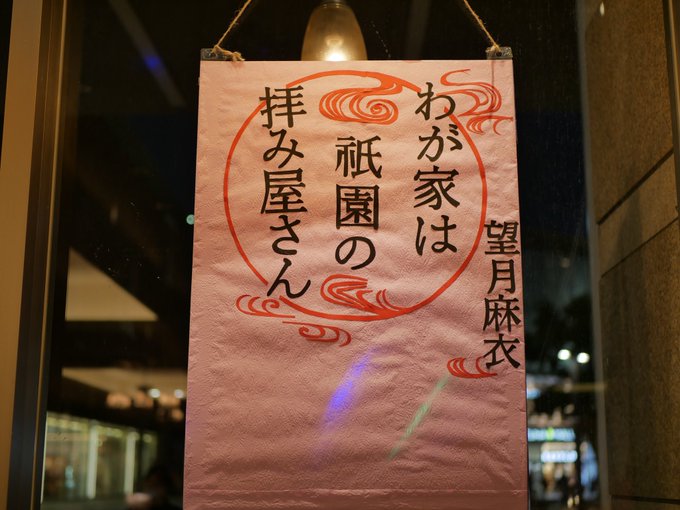 わが家は
祇園の
拝み屋さん
望月麻衣